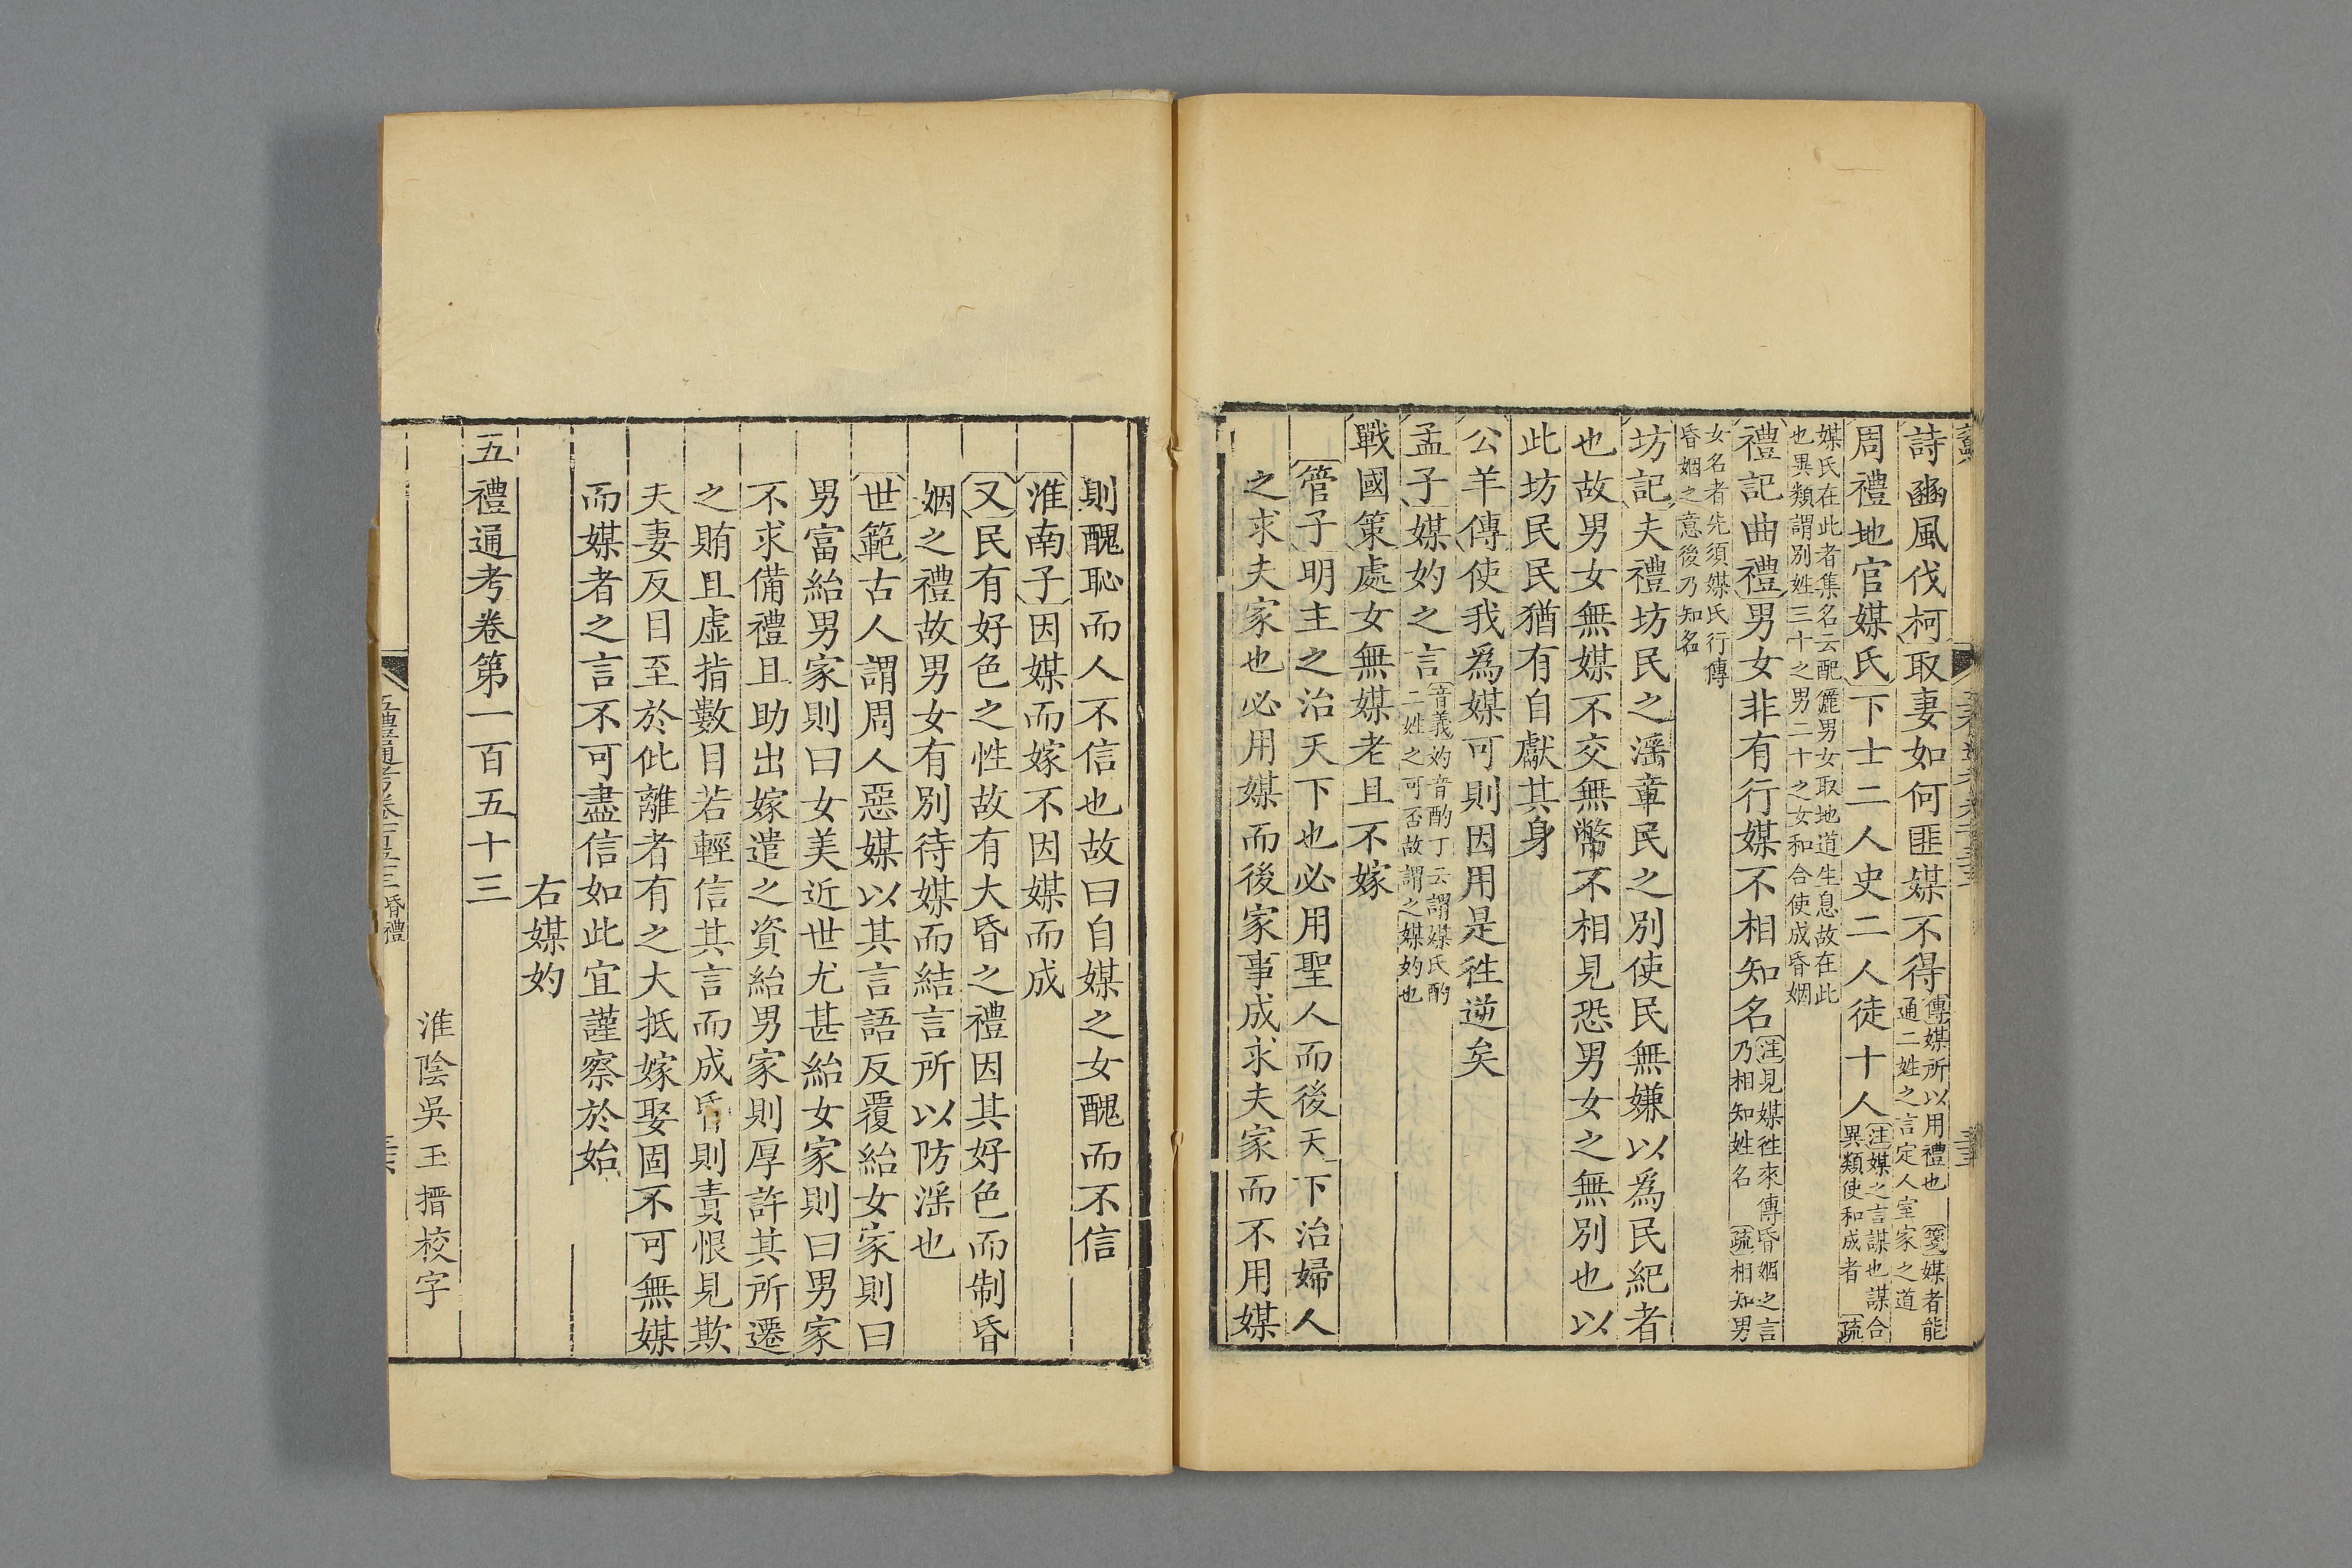 詩豳風伐柯取妻如何匪媒不得傳媒所以用禮也 箋媒者能通二姓之言定人室家之道
周禮地官媒氏下士二人史二人徒十人注媒之言謀也謀合異類使和成者 疏
媒氏在此者集名云配儷男女取地道生息故在此也異類謂別姓三十之男二十之女和合使成昏姻
禮記曲禮男女非有行媒不相知名注見媒徃來傳昏姻之言乃相知姓名 疏相知男
女名者先須媒氏行傳昏姻之意後乃知名
坊記夫禮坊民之滛章民之別使民無嫌以爲民紀者
也故男女無媒不交無幣不相見恐男女之無別也以
此坊民民猶有自獻其身
公羊傳使我爲媒可則因用是徃逆矣
孟子媒妁之言音義妁音酌丁云謂媒氏酌二姓之可否故謂之媒妁也
戰國策處女無媒老且不嫁
管子明主之治天下也必用聖人而後天下治婦人
之求夫家也必用媒而後家事成求夫家而不用媒
則醜恥而人不信也故曰自媒之女醜而不信
淮南子因媒而嫁不因媒而成
又民有好色之性故有大昏之禮因其好色而制昏
姻之禮故男女有別待媒而結言所以防滛也
世範古人謂周人惡媒以其言語反覆紿女家則曰
男富紿男家則曰女美近世尤甚紿女家則曰男家
不求備禮且助出嫁遣之資紿男家則厚許其所遷
之賄且虛指數目若輕信其言而成昏則責恨見欺
夫妻反目至於仳離者有之大抵嫁娶固不可無媒
而媒者之言不可盡信如此宜謹察於始
右媒妁
五禮通考卷第一百五十三
淮陰吳玉搢校字
五禮通考卷一百五十三昏禮